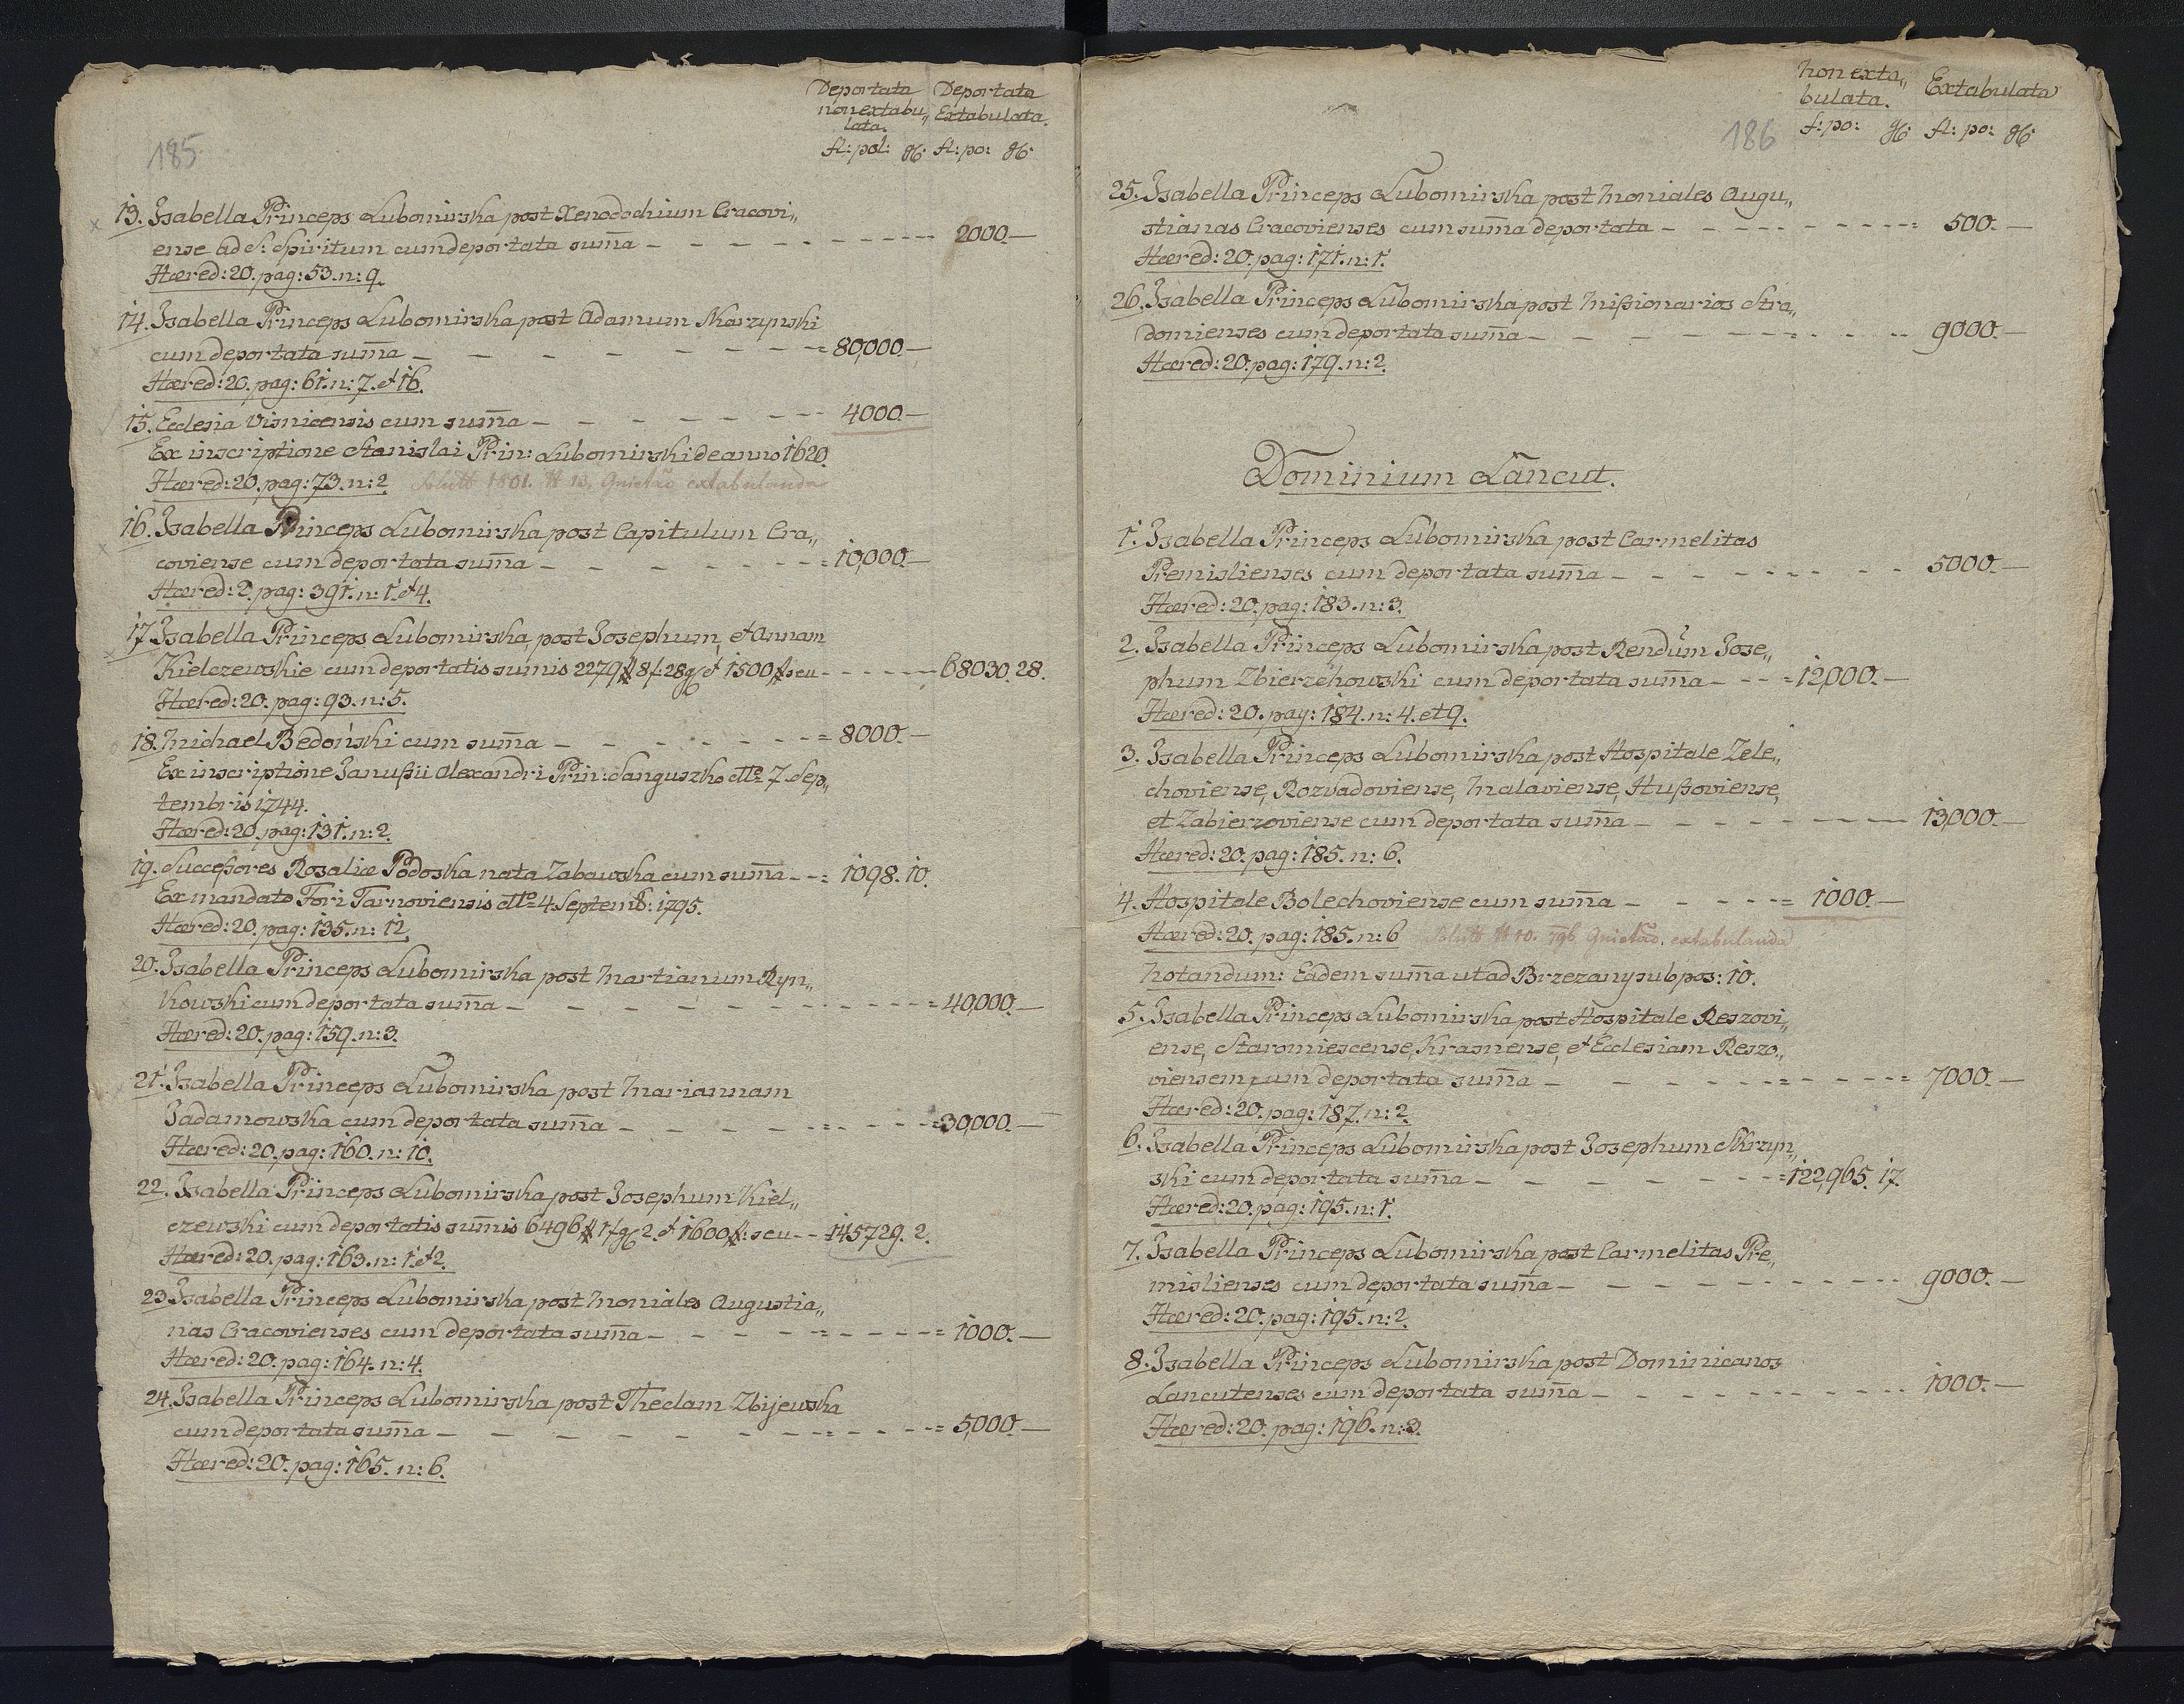 185.
Deportata Deportata
nonextabu„ Extabulata.
lata.
fl: pol: g6 fl: po: g6
13. Isabella Princeps Lubomirska post Xenodochium Cracovi„
ense ad S: Spiritum cum deportata sum̄a – – – – 2000.–
Hæred: 20. pag: 53. n: 9.
14. Isabella Princeps Lubomirska post Adamum Skarzynski
cum deportata sum̄a – – – – = 80,000.–
Hæred: 20. pag: 61. n: 7. et 16.
15. Ecclesia Visnicensis cum sum̄a – – – – 4000.–
Ex inscriptione Stanislai Prin: Lubomirski de anno 1620.
Hæred: 20. pag: 73. n: 2 1801. 13. Quietão extabulanda
16. Isabella Princeps Lubomirska post Capitulum Cra„
coviense cum deportata sum̄a – – – – = 10,000.–
Hæred: 2. pag: 391. n: 1. et 4.
17 Isabella Princeps Lubomirska, post Josephum, et Annam
Kielczewskie cum deportatis sumis 2279 # 8 f. 28 g et 1500 # seu – – – – 68030. 28.
Hæred: 20. pag: 93. n: 5.
18. Michael Bedoński cum sum̄a – – – – = 8000.–
Ex inscriptione Janußii Alexandri Prin: Sanguszko dtto 7. Sep„
tembris 1744.
Hæred: 20. pag: 131. n: 2.
19. Succeßores Rosaliæ Podoska nata Zabawska cum sum̄a – – = 1098. 10.
Ex mandato Fori Tarnoviensis dtto 4 Septemb: 1795.
Hæred: 20. pag: 135. n: 12
20. Isabella Princeps Lubomirska post Martianum Ryn„
kowski cum deportata sum̄a – – – – = 40,000.–
Hæred: 20. pag: 159. n: 3.
21. Isabella Princeps Lubomirska post Mariannam
Jadamowska cum deportata sum̄a – – – – = 30,000.–
Hæred: 20. pag: 160. n: 10.
22. Isabella Princeps Lubomirska post Josephum Kiel„
czewski cum deportatis sum̄is 6496 # 17 g 2. et 1600 #: seu – – 145729. 2.
Hæred: 20. pag: 163. n: 1. et 2.
23 Isabella Princeps Lubomirska post Moniales Augustia„
nas Cracovienses cum deportata sum̄a – – – – = 1000.–
Hæred: 20. pag: 164. n: 4.
24. Isabella Princeps Lubomirska post Theclam Zbijewska
cum deportata sum̄a – – – – = 5,000.–
Hæred: 20. pag: 165. n: 6.
186
non exta„ Extabulata
bulata.
f: po: g6 fl: po: g6
25. Isabella Princeps Lubomirska post Moniales Augu„
stianas Cracovienses cum sum̄a deportata – – – – = 500.–
Hæred: 20. pag: 171. n: 1.
26. Isabella Princeps Lubomirska post Mißionarios Stra„
domienses cum deportata sum̄a – – – – 9000.–
Hæred: 20. pag: 179. n: 2.
Dominium Lancut.
1. Isabella Princeps Lubomirska post Carmelitas
Premislienses cum deportata sum̄a – – – – 5000.–
Hæred: 20. pag: 183. n: 3.
2. Isabella Princeps Lubomirska post Rendum Jose„
phum Zbierzchowski cum deportata sum̄a – – = 12,000.–
Hæred: 20. pag: 184. n: 4. et 9.
3. Isabella Princeps Lubomirska post Hospitale Zele„
choviense, Rozvadoviense, Malaviense, Hußoviense,
et Zabierzoviense cum deportata sum̄a – – – – 13,000.–
Hæred: 20. pag: 185. n: 6.
4. Hospitale Bolechoviense cum sum̄a – – – – = 1000.–
Hæred: 20. pag: 185. n: 6 10. 796 Quietão. extabulanda
Notandum: Eadem sum̄a ut ad Brzezany sub pos: 10.
5. Isabella Princeps Lubomirska post Hospitale Reszovi„
ense, Staromiescense, Krasnense, et Ecclesiam Reszo„
viensem cum deportata sum̄a – – – – = 7000.–
Hæred: 20. pag: 187. n: 2.
6. Isabella Princeps Lubomirska post Josephum Skrzyn„
ski cum deportata sum̄a – – – – = 122,965. 17.
Hæred: 20. pag: 195. n: 1.
7. Isabella Princeps Lubomirska post Carmelitas Pre„
mislienses cum deportata sum̄a – – – – 9000.–
Hæred: 20. pag: 195. n: 2.
8. Isabella Princeps Lubomirska post Dominicanos
Lancutenses cum deportata sum̄a – – – – 1000.–
Hæred: 20. pag: 196. n: 3.